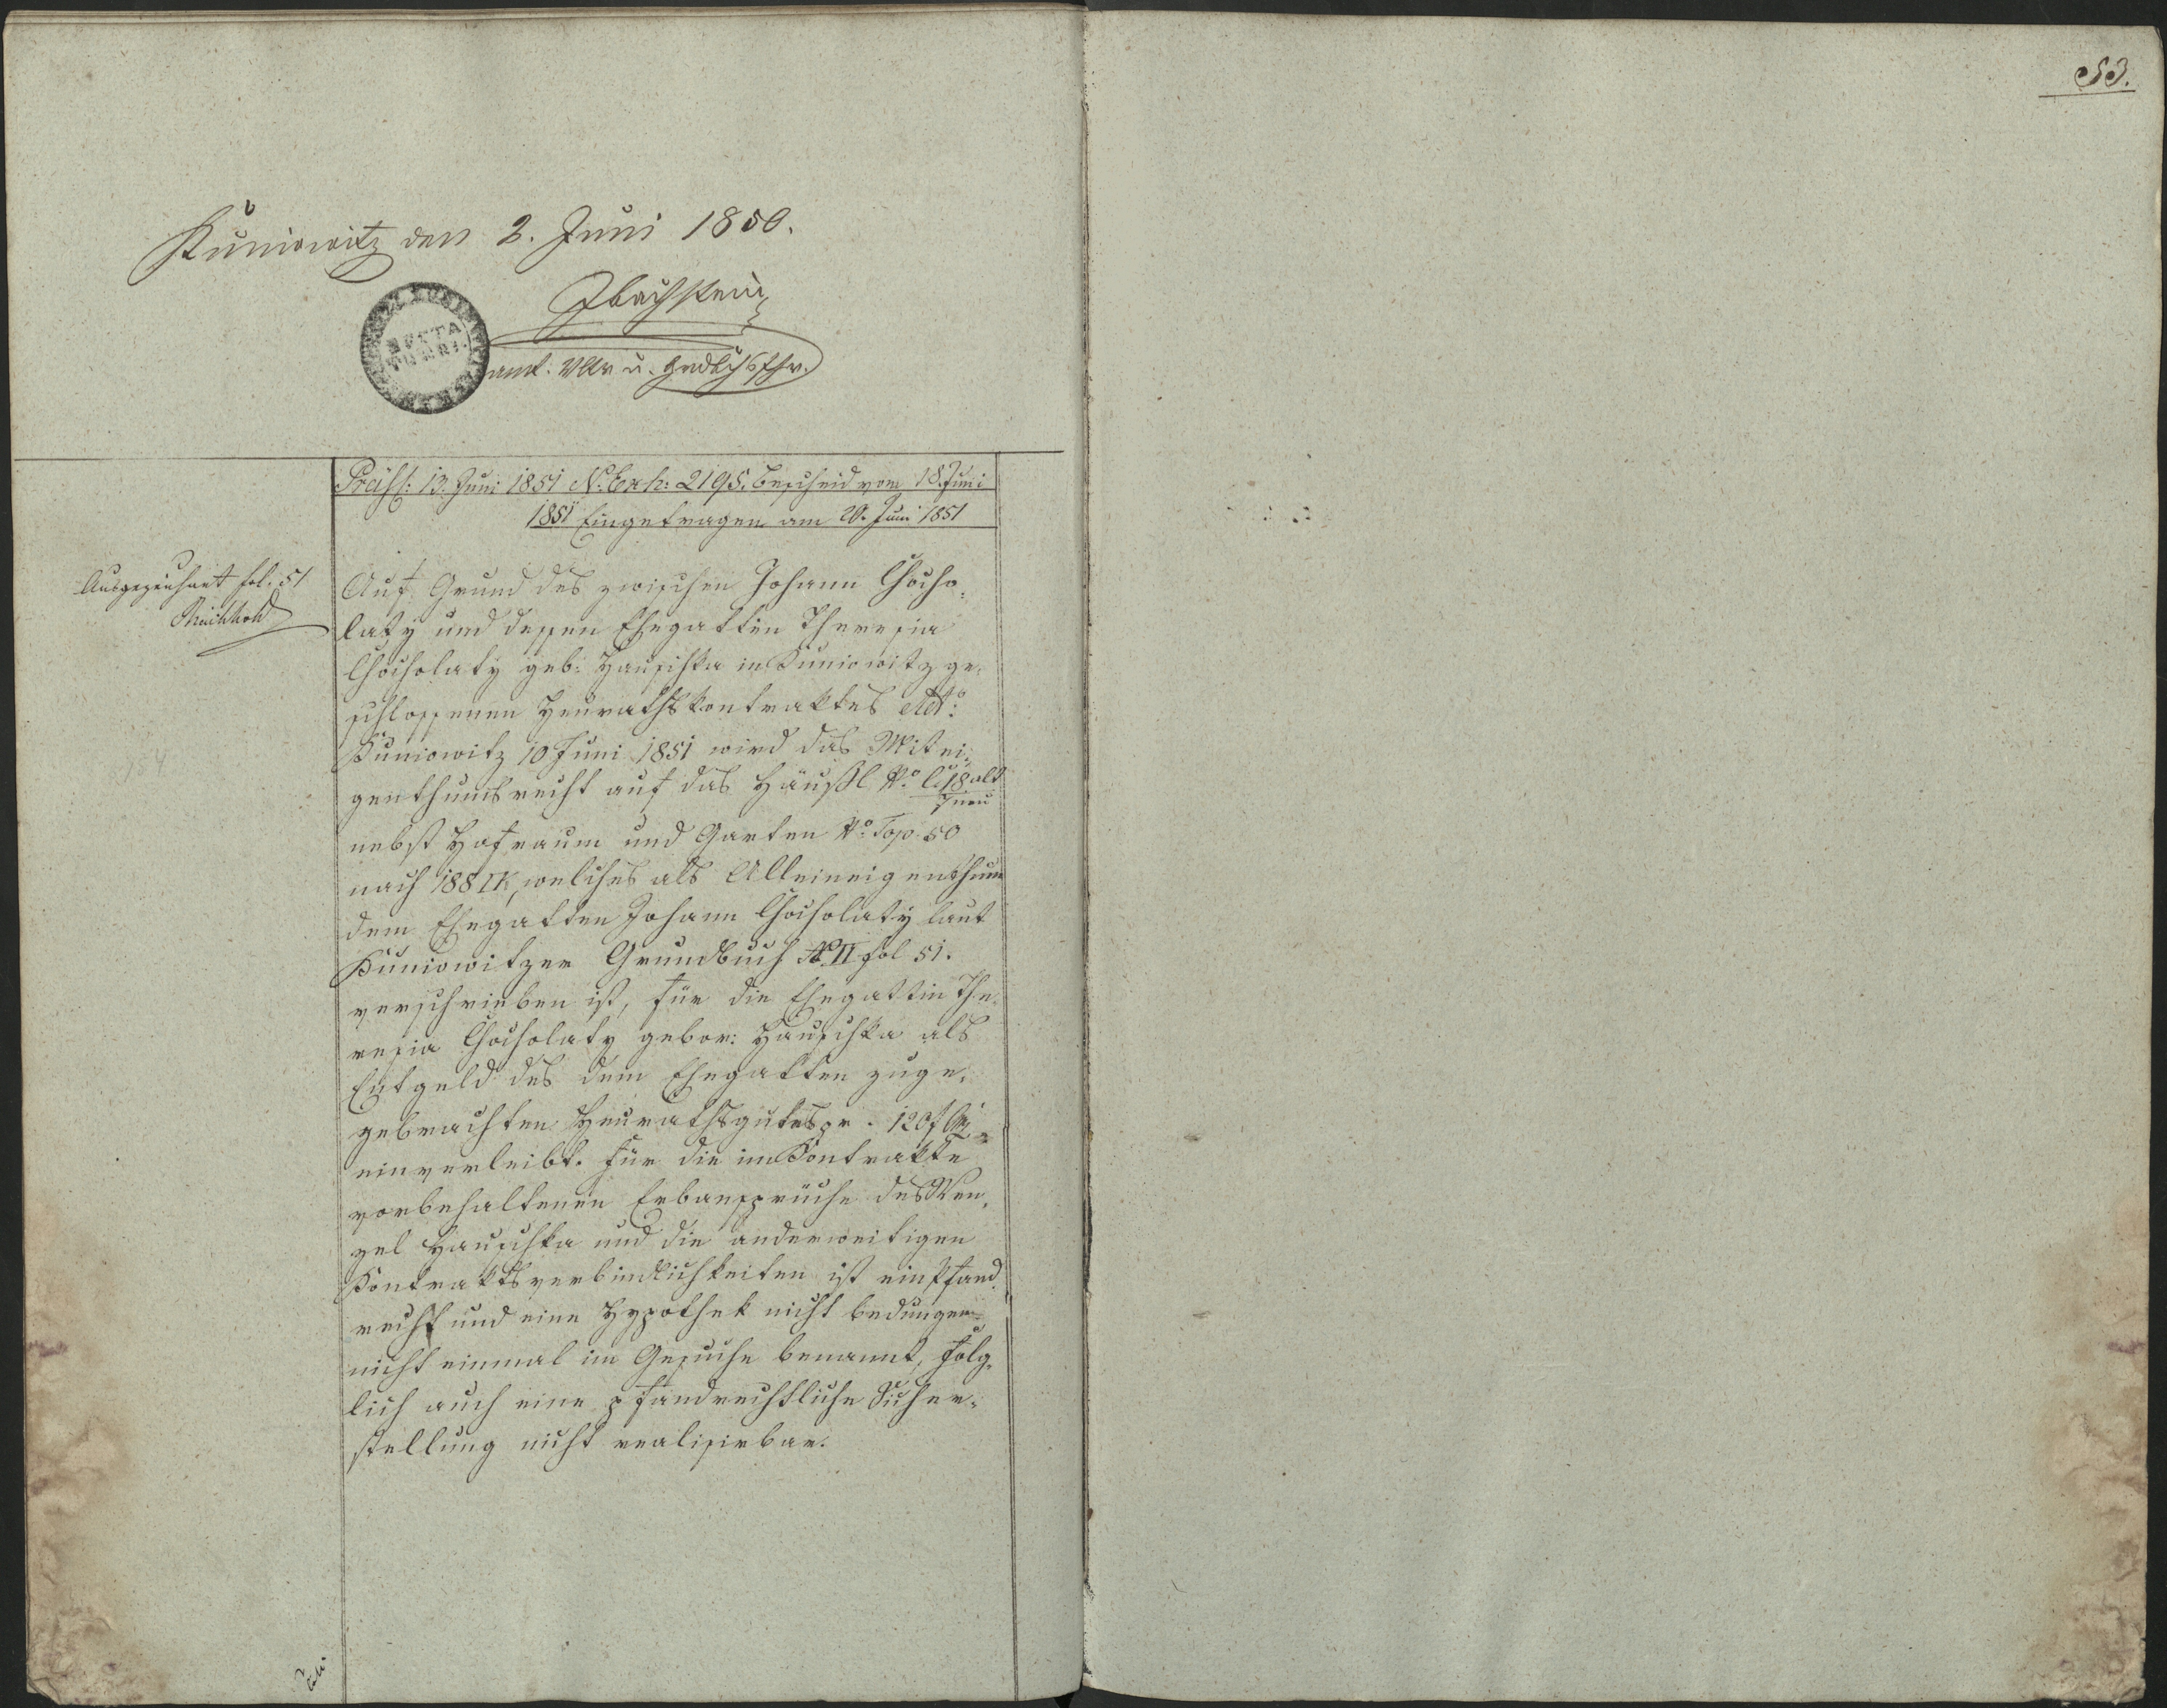 53.
Kuniowitz den 2. Juni 1850.
amt. Vltr u. Grdbchsfhr.
Präss: 13. Juni 1851 N. Exh: 2195. Bescheid vom 18. Juni
1851 Eingetragen am 20. Juni 1851
Ausgezeichnet fol. 51
Auf Grund des zwischen Johann Chocho-
laty und dessen Ehegattin Theresia
Chocholaty geb: Hauschka in Kuniowitz ge-
schlossenen Heurathskontraktes ddto:
Kuniowitz 10 Juni 1851 wird das Mitei-
genthumsrecht auf das Häußl No. C. 18 alt
7 neu
nebst Hofraum und Garten No. Top. 50
nach 188 □K, welches als Alleineigenthum
dem Ehegatten Johann Chocholaty laut
Kuniowitzer Grundbuch No. II fol 51.
verschrieben ist, für die Ehegattin The-
resia Chocholaty gebor: Hauschka als
Entgeld des dem Ehegatten zuge-
gebrachten Heurathsgutes pr. 120 f CM
einverleibt. Für die im Kontrakte
vorbehaltenen Erbansprüche des Wen-
zel Hauschka und die anderweitigen
Kontraktsverbindlichkeiten ist ein Pfand-
recht und eine Hypothek nicht bedungen,
nicht einmal im Gesuche benannt, folg-
lich auch eine pfandrechtliche Sicher-
stellung nicht realisirbar.